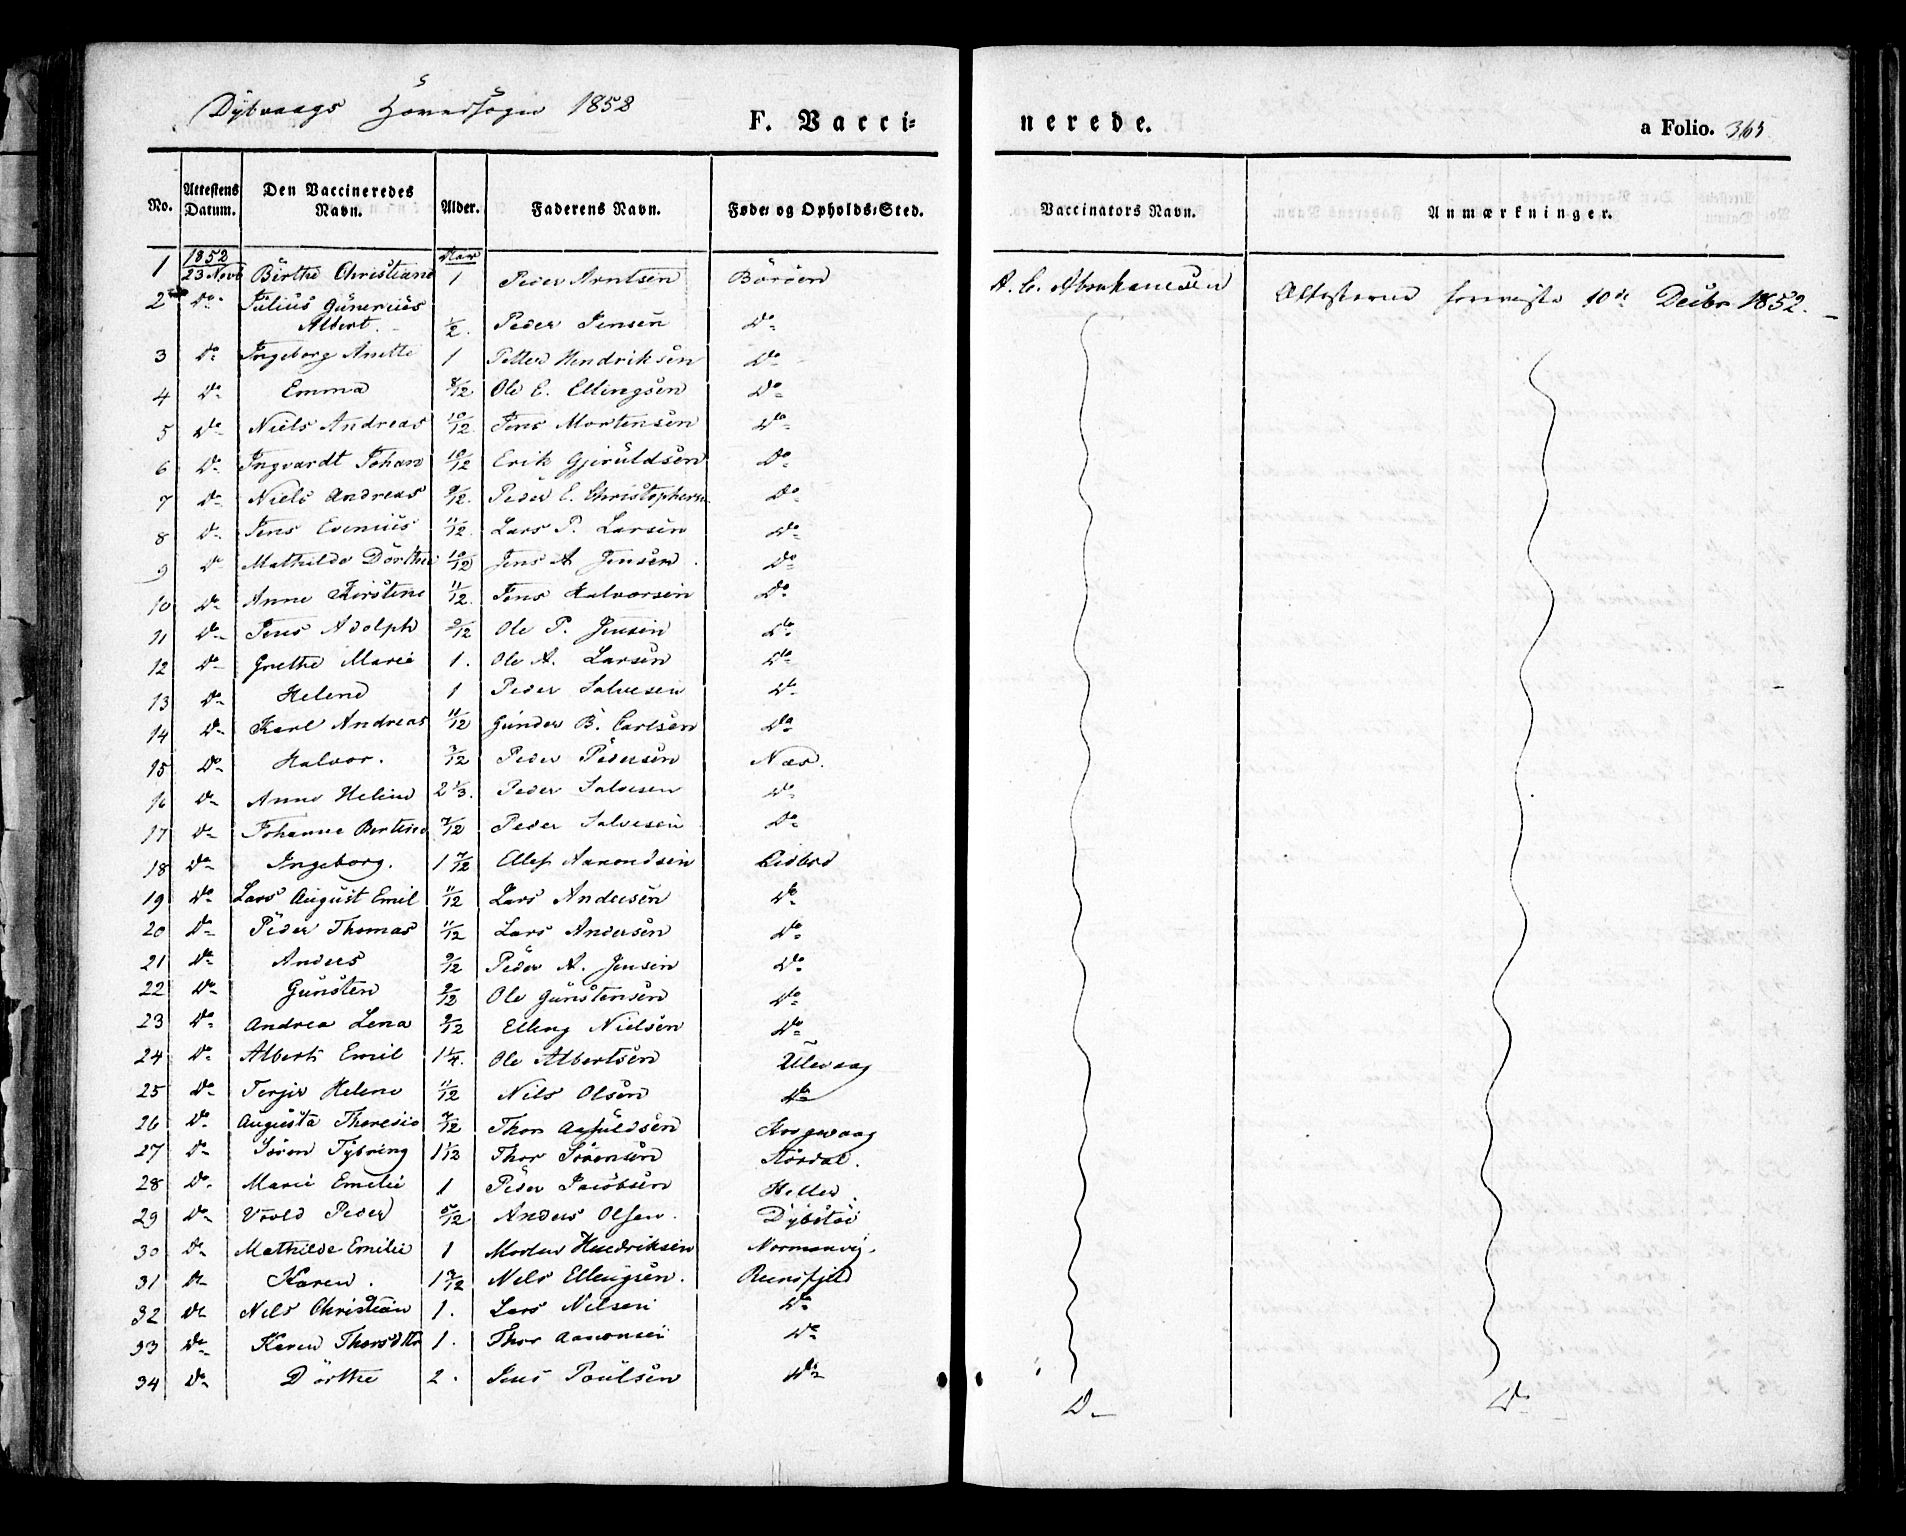 Dybvaags Hovedsogn 1852
F. Vacci=
nerede.
a Folio. 365
No. Attestens Datum. Den Vaccineredes Navn. Alder. Faderens Navn. Føde= og Opholds=Sted. Vaccinators Navn. Anmærkninger.
1 1852 23 Novb Birthe Christiane Aar 1 Peder Arntsen Böröen A. C. Abrahamsen Attesterne foreviste 10de Decbr 1852.
2 Do Julius Gunerius
Albert. 1/2. Peder Jensen Do
3 Do Ingeborg Anette 1 Petter Hendriksen Do
4 Do Emma 8/12 Ole E. Ellingsen Do
5 Do Niels Andreas 10/12 Jens Mortensen Do
6 Do Ingvardt Johan 10/12 Erik Gjeruldsen Do
7 Do Niels Andreas 9/12. Peder E. Christophersen Do
8 Do Jens Evenius 11/12 Lars P. Larsen Do
9 Do Mathilde Dorthe 10/12 Jens A Jensen. Do
10 Do Anne Kirstine 11/12. Jens Halvorsen Do
11 Do Jens Adolph 9/12 Ole P. Jensen Do
12 Do Grethe Marie 1. Ole A. Larsen Do
13 Do Helene 1 Peder Salvesen Do
14 Do Karl Andreas 11/12 Gunder B. Carlsen Do
15 Do Halvor. 3/12 Peder Pedersen Næs.
16 Do Anne Helene 2 1/3. Peder Salvesen Do
17 Do Johanne Bertine 7/12 Peder Salvesen Do
18 Do Ingeborg. 1 7/12 Ellef Aamondsen Lidbod
19 Do Lars August Emil 11/12 Lars Andersen Do
20 Do Peder Thomas 11/12 Lars Andersen Do
21 Do Anders 9/12 Peder A. Jensen Do
22 Do Gunsten 9/12 Ole Gunstensen Do
23 Do Andrea Lena 9/12 Elling Nielsen Do
24 Do Albert Emil 1 1/4. Ole Albertsen Ulevaag
25 Do Terjer Helene 11/12 Nils Olsen Do
26 Do Augusta Theresie 7/12 Thor Aasuldsen Krogvaag
27 Do Sören Tybring 1 1/12 Thor Sörensen Stördal.
28 Do Marie Emelie 1 Peder Jacobsen Helle.
29 Do Vrold Peder 5/12 Anders Olsen. Dybstöe
30 Do Mathilde Emilie 1 Morten Hendriksen Normanvig.
31 Do Karen. 1 3/12 Nels Ellingsen. Reensfjeld
32 Do Nels Christian 1. Lars Nelsen Do
33 Do Karen Thorsdtr 1. Thor Aanonsen Do
34 Do Dorthe 2. Jens Poulsen Do
Do Do